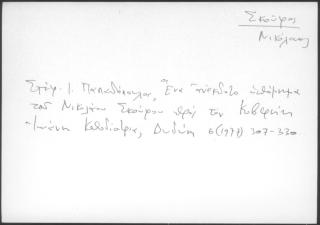 Σκούφος
Νικόλαος
Στέφ. Ι. Παπαδόπουλος, Ἕνα ἀνέκδοτο ὑπόμνημα
τοῦ Νικολάου Σκούφου πρός τόν Κυβερνήτη
Ἰωάννη Καποδίστρια, Δωδώνη 6 (1977) 307-330.